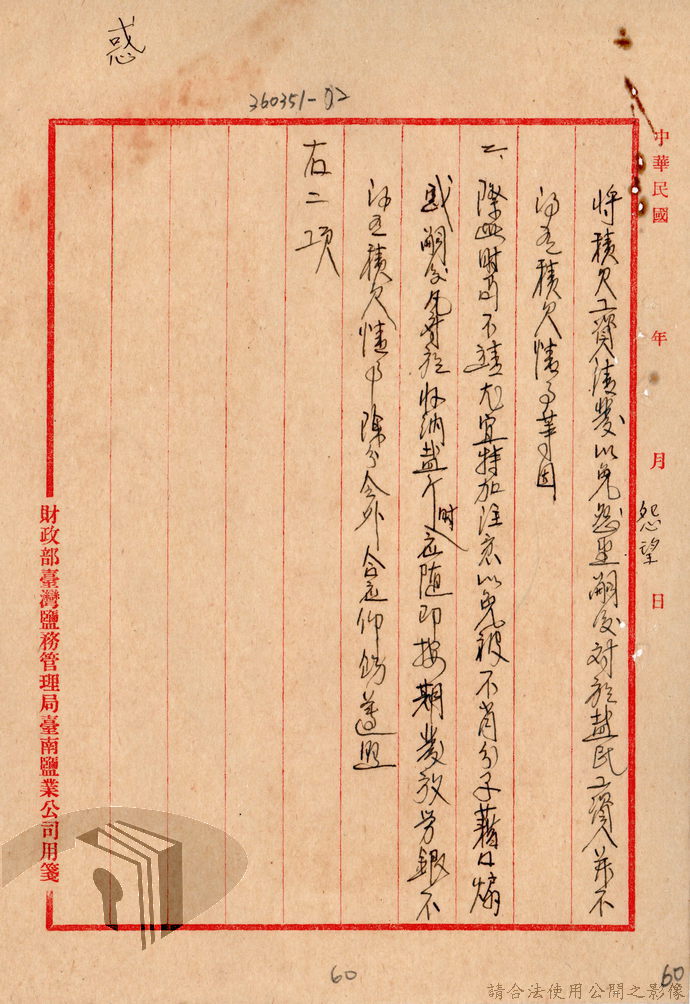 惑
360351-02
中華民國 年 月 日
怨望
將積欠工資清發以免怨望嗣後對於鹽民工資並不
得有積欠情事等因
二、際此時局不靖尤宜特加注意以免被不肖分子藉口煽
惑嗣後凡於收納鹽斤時應隨即按期發放勞銀不
得有積欠情事除分令外合亟仰飭遵照
右二項
財政部臺灣鹽務管理局臺南鹽業公司用箋
60
60
請合法使用公開之影像